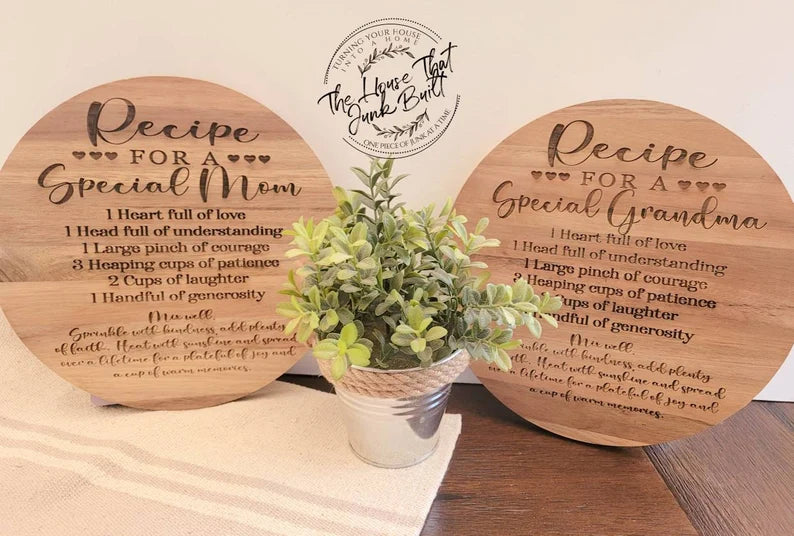 TURNING YOUR HOUSE
INTO A HOME
The House That
Junk Built
ONE PIECE OF JUNK AT A TIME
Recipe
FOR A
Special Mom
1 Heart full of love
1 Head full of understanding
1 Large pinch of courage
3 Heaping cups of patience
2 Cups of laughter
1 Handful of generosity
Mix well.
Sprinkle with kindness, add plenty
of faith. Heat with sunshine and spread
over a lifetime for a plateful of joy and
a cup of warm memories.
Recipe
FOR A
Special Grandma
1 Heart full of love
1 Head full of understanding
1 Large pinch of courage
3 Heaping cups of patience
cups of laughter
ndful of generosity
Mix well.
inkle with kindness, add plenty
th. Heat with sunshine and spread
over a lifetime for a plateful of joy and
a cup of warm memories.